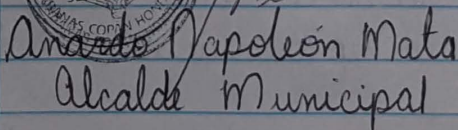 COPÁN HON
Anardo Napoleón Mata
Alcalde Municipal